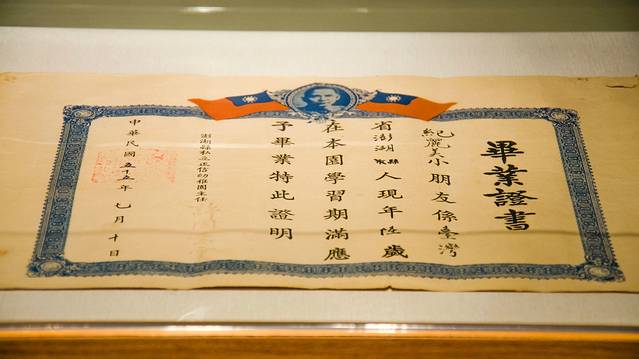 畢業證書
紀麗美小朋友係臺灣
省澎湖縣人現年伍歲
在本園學習期滿應
予畢業特此證明
澎湖縣私立正信幼稚園主任
中華民國五十五年七月十日